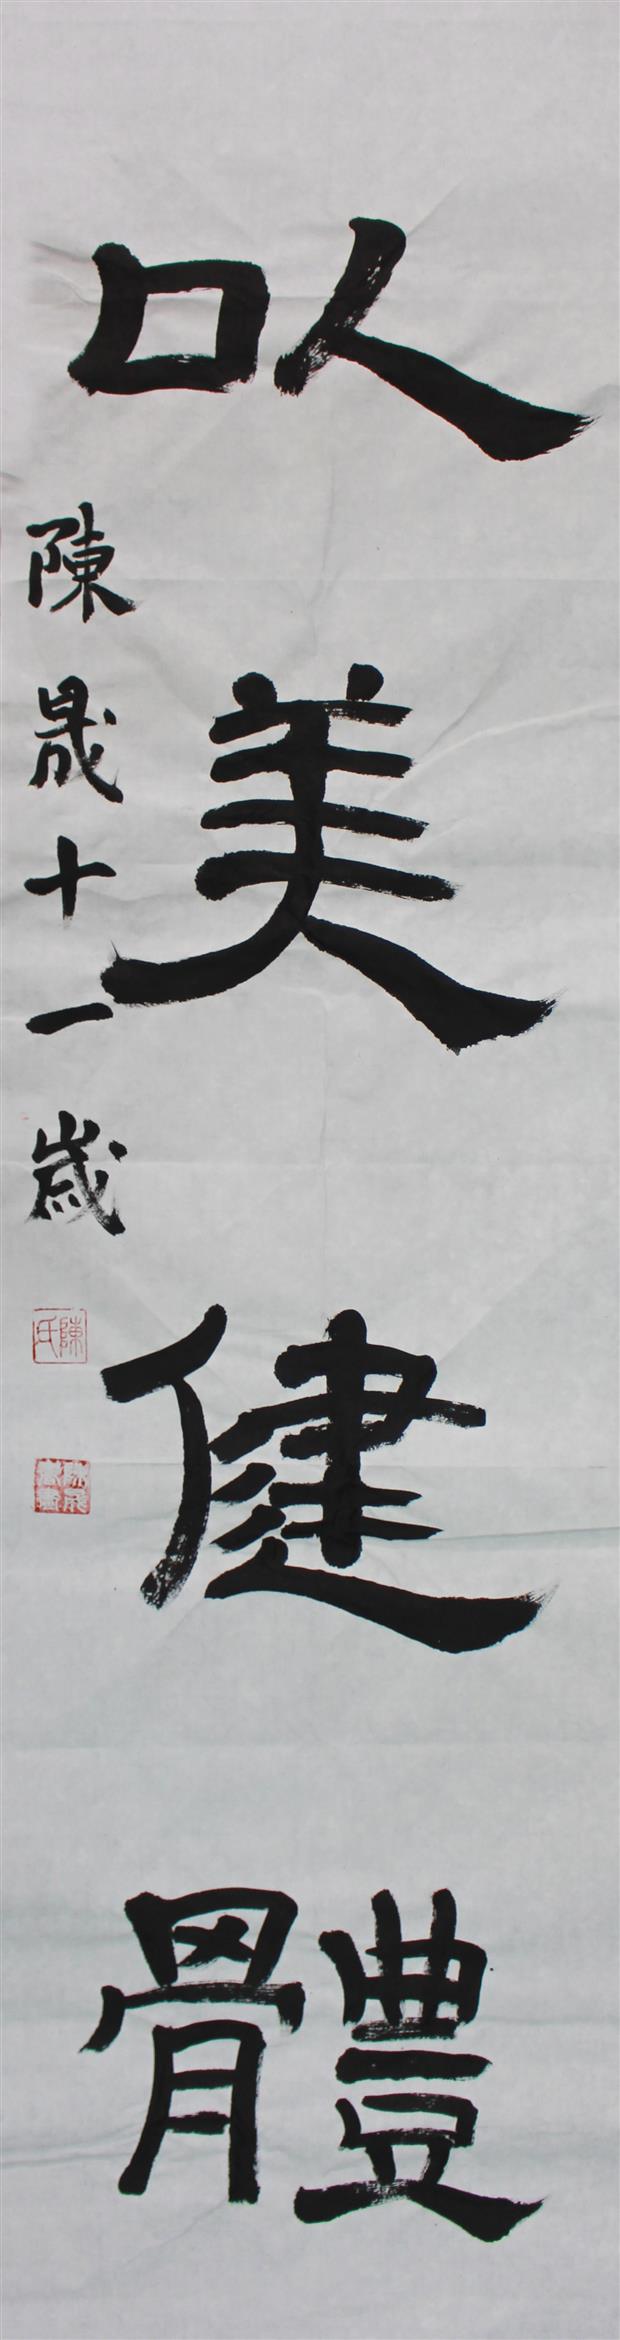 以美健體
陳晟十一歲
陳氏